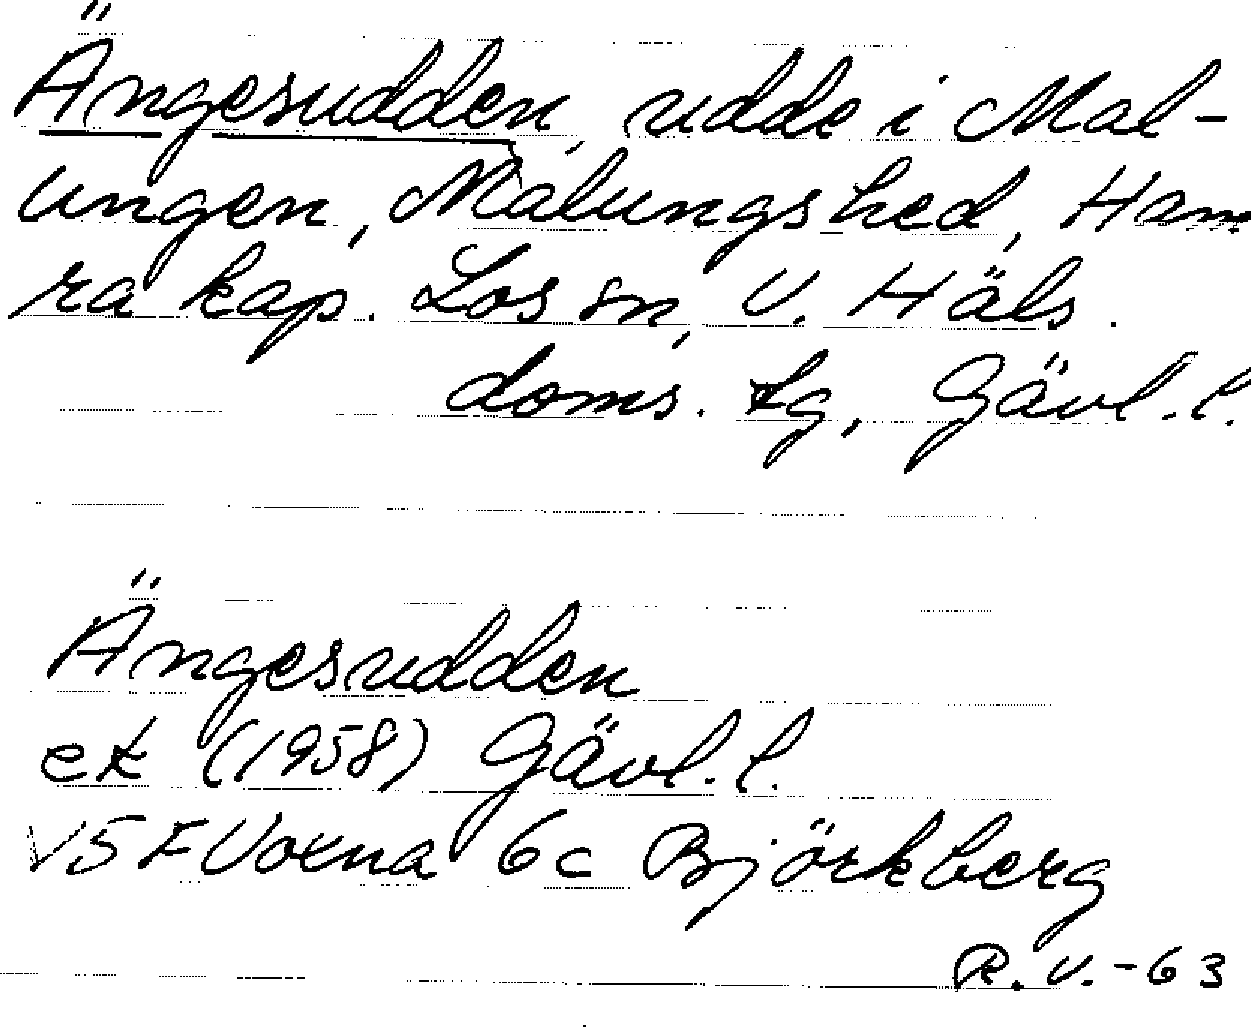 Ängesudden, udde i Mal-
ungen, Malungs hed, Ham
ra kap. Los sn, V. Häls.
doms. tg, Gävl. l.
Ängesudden
ek (1958) Gävl. l.
15 F Voxna 6c Björkberg
R. V. -63